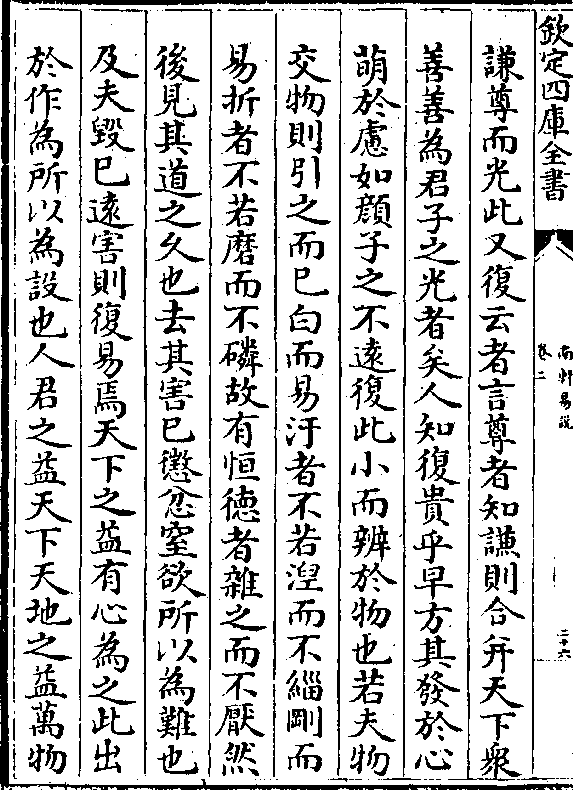 欽定四庫全書
南軒易說
卷二
二十六
謙尊而光此又復云者言尊者知謙則合并天下衆
善善為君子之光者矣人知復貴乎早方其發於心
萌於慮如顔子之不遠復此小而辨於物也若夫物
交物則引之而已白而易汙者不若湼而不緇剛而
易折者不若磨而不磷故有恒德者雜之而不厭然
後見其道之久也去其害已懲忿窒欲所以為難也
及夫毀已逺害則復易焉天下之益有心為之此出
於作為所以為設也人君之益天下天地之益萬物